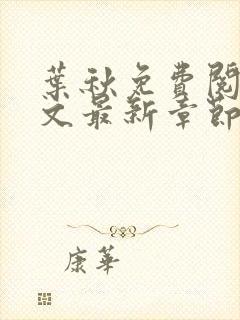 葉秋免費閱
文最新章節
康華